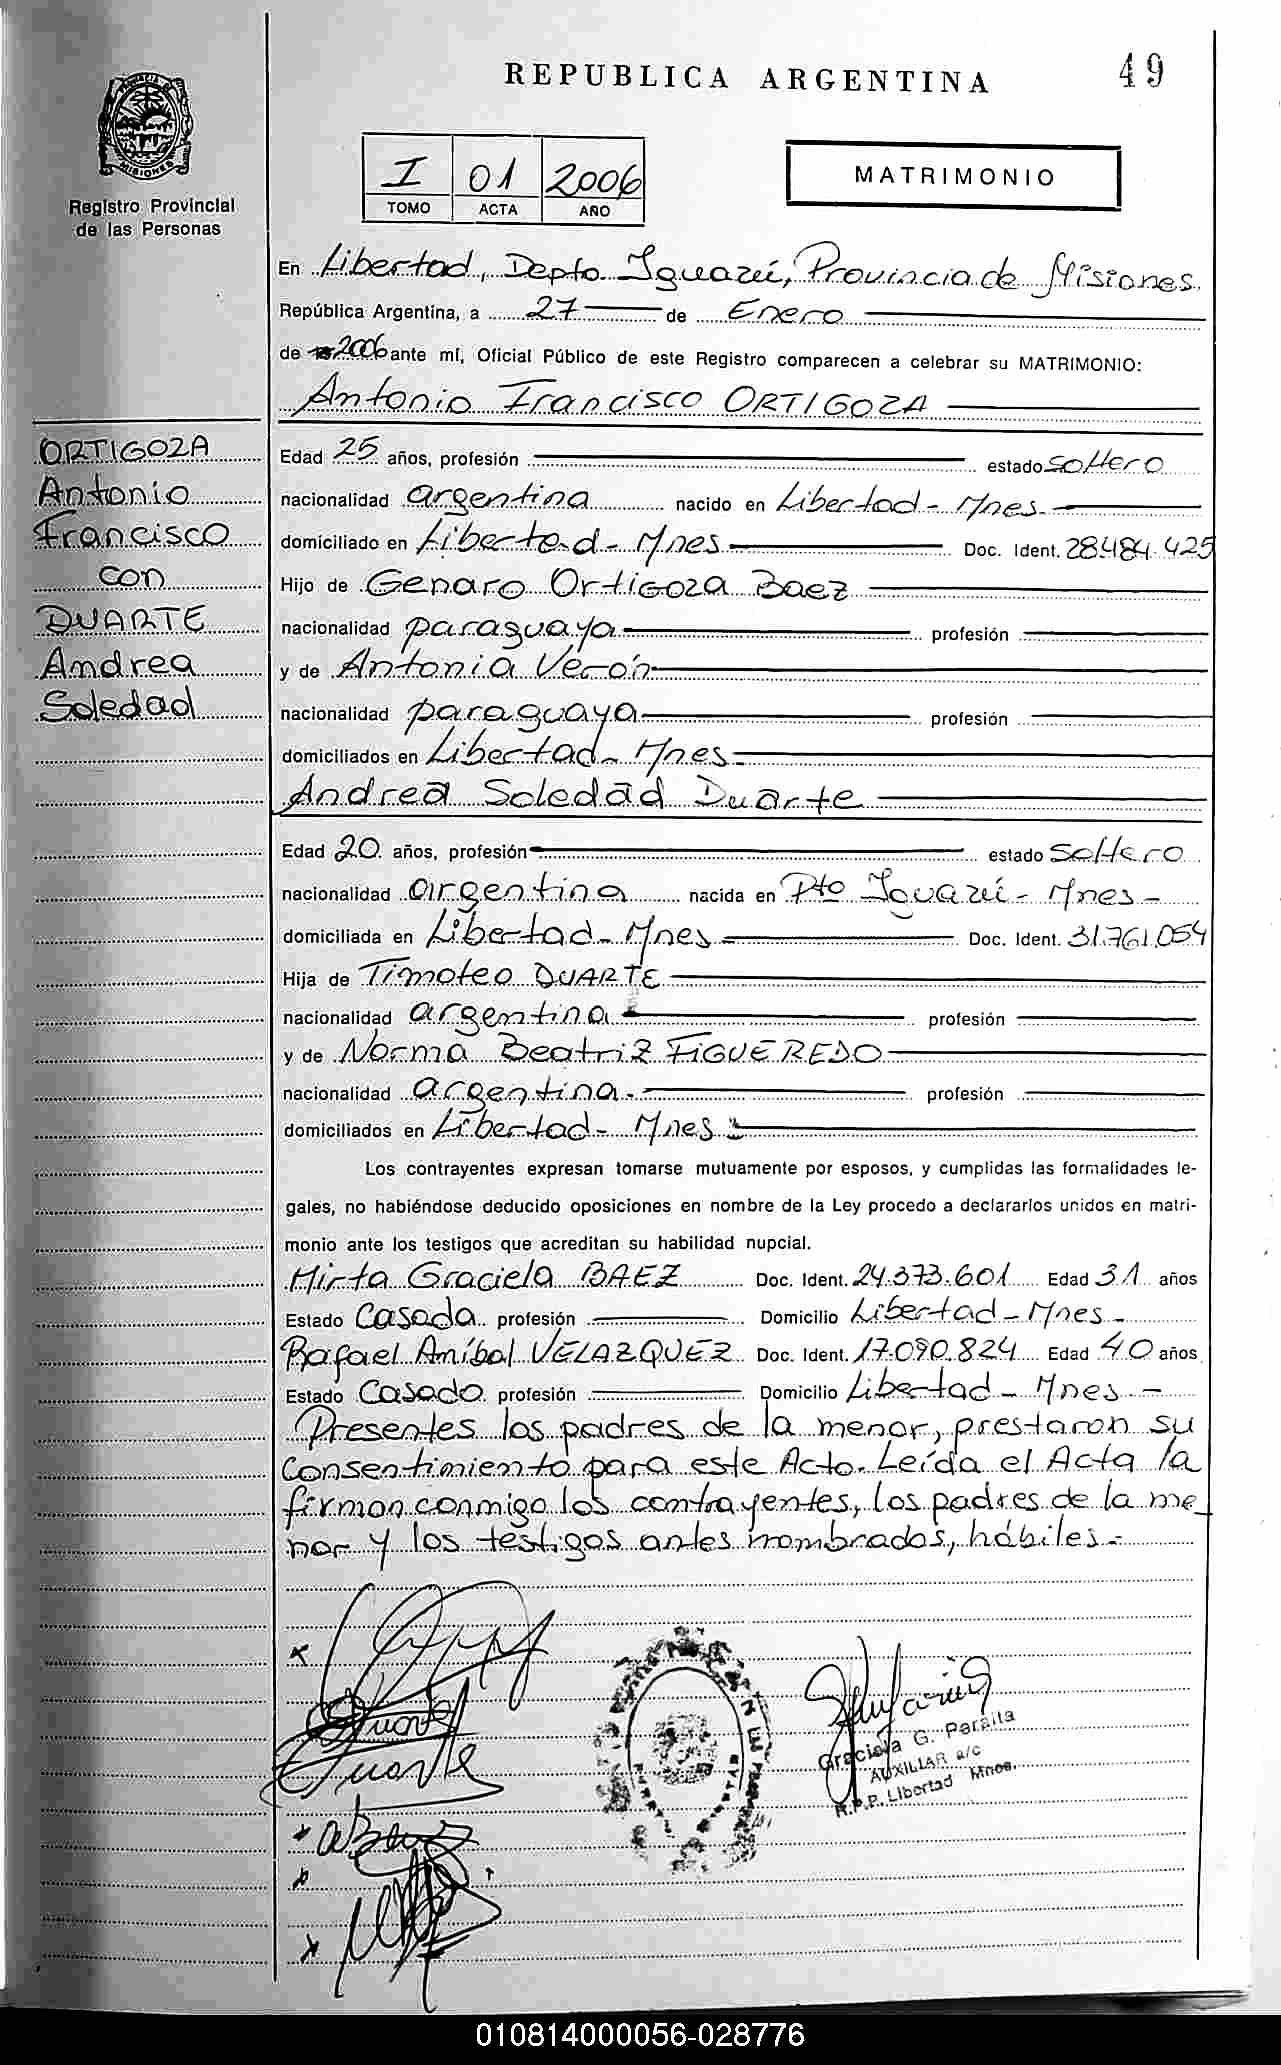 REPUBLICA ARGENTINA
49
PROVINCIA
MISIONES
Registro Provincial
de las Personas
I 01 2006
TOMO ACTA AÑO
MATRIMONIO
En Libertad, Depto. Iguazú, Provincia de Misiones.
República Argentina, a 27 de Enero
de 2006 ante mí, Oficial Público de este Registro comparecen a celebrar su MATRIMONIO:
Antonio Francisco ORTIGOZA
ORTIGOZA
Antonio
Francisco
con
DUARTE
Andrea
Soledad
Edad 25 años, profesión estado soltero
nacionalidad argentina nacido en Libertad - Mnes.
domiciliado en Libertad - Mnes Doc. Ident. 28.484.425
Hijo de Genaro Ortigoza Baez
nacionalidad paraguaya profesión
y de Antonia Verón
nacionalidad paraguaya profesión
domiciliados en Libertad - Mnes.
Andrea Soledad Duarte
Edad 20 años, profesión estado soltero
nacionalidad argentina nacida en Pto Iguazú - Mnes -
domiciliada en Libertad - Mnes Doc. Ident. 31.761.054
Hija de Timoteo DUARTE
nacionalidad argentina profesión
y de Norma Beatriz FIGUEREDO
nacionalidad argentina. profesión
domiciliados en Libertad - Mnes
Los contrayentes expresan tomarse mutuamente por esposos, y cumplidas las formalidades le-
gales, no habiéndose deducido oposiciones en nombre de la Ley procedo a declararlos unidos en matri-
monio ante los testigos que acreditan su habilidad nupcial.
Mirta Graciela BAEZ Doc. Ident. 24.373.601 Edad 31 años
Estado Casada profesión Domicilio Libertad - Mnes -
Rafael Aníbal VELAZQUEZ Doc. Ident. 17.090.824 Edad 40 años
Estado Casado profesión Domicilio Libertad - Mnes -
Presentes los padres de la menor, prestaron su
Consentimiento para este Acto. Leída el Acta la
firman conmigo los contrayentes, los padres de la me_
nor y los testigos antes nombrados, hábiles.-
Duarte
Duarte
Graciela G. Peralta
AUXILIAR a/c
R.P.P. Libertad Mnes.
010814000056-028776